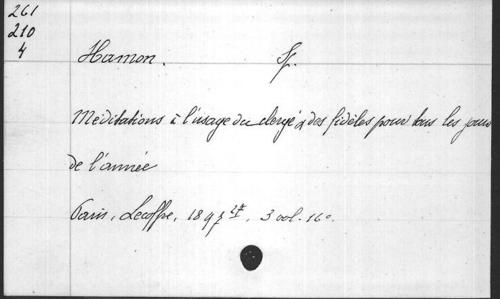 261
210
4
Hamon. Sp.
Méditations à l'usage du clergé & des fidèles pour tous les jours
de l'année
Paris, Lecoffre, 1897 3 vol. 16°.